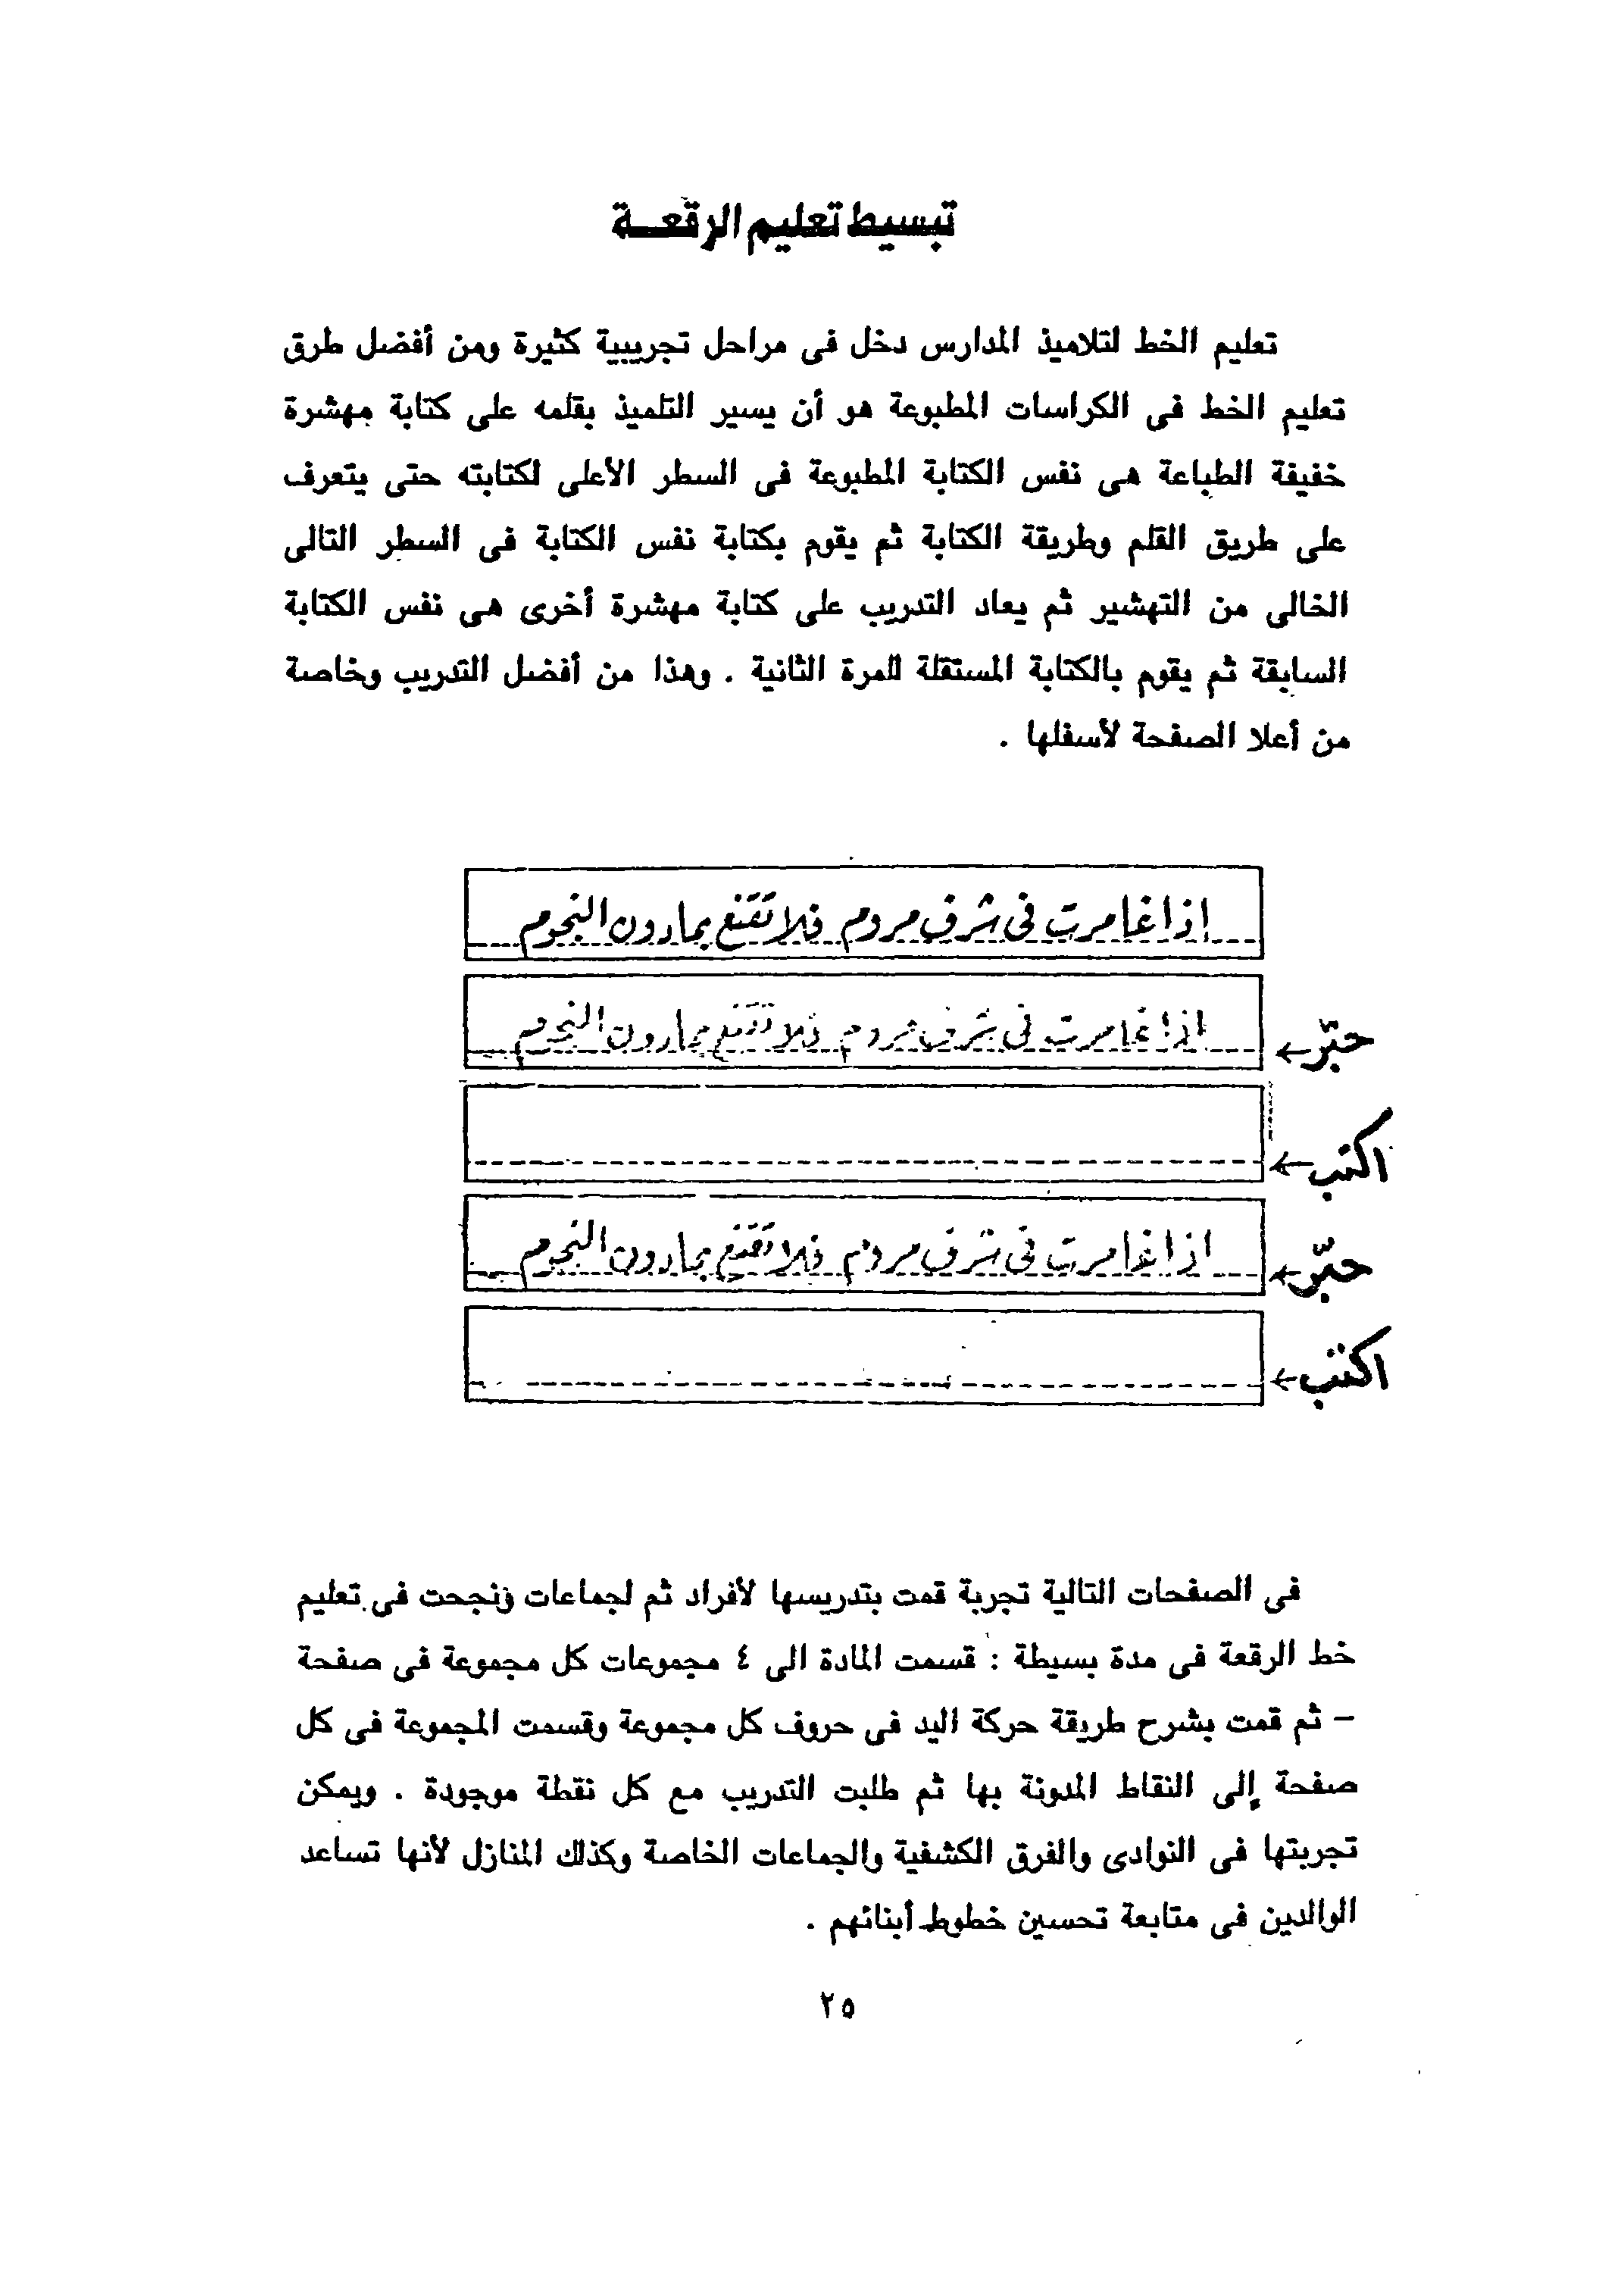 تبسيط تعليم الرقعــة
تعليم الخط لتلاميذ المدارس دخل فى مراحل تجريبية كثيرة ومن أفضل طرق
تعليم الخط فى الكراسات المطبوعة هو أن يسير التلميذ بقلمه على كتابة مهشرة
خفيفة الطباعة هى نفس الكتابة المطبوعة فى السطر الأعلى لكتابته حتى يتعرف
على طريق القلم وطريقة الكتابة ثم يقوم بكتابة نفس الكتابة فى السطر التالى
الخالى من التهشير ثم يعاد التدريب على كتابة مهشرة أخرى هى نفس الكتابة
السابقة ثم يقوم بالكتابة المستقلة للمرة الثانية . وهذا من أفضل التدريب وخاصة
من أعلا الصفحة لأسفلها .
اذا غامرت فى شرف مروم فلا تقنع بما دون النجوم
حبّر ← اذا غامرت فى شرف مروم فلا تقنع بما دون النجوم
اكتب ←
حبّر ← اذا غامرت فى شرف مروم فلا تقنع بما دون النجوم
اكتب ←
فى الصفحات التالية تجربة قمت بتدريسها لأفراد ثم لجماعات ونجحت فى تعليم
خط الرقعة فى مدة بسيطة : قسمت المادة الى ٤ مجموعات كل مجموعة فى صفحة
– ثم قمت بشرح طريقة حركة اليد فى حروف كل مجموعة وقسمت المجموعة فى كل
صفحة إلى النقاط المدونة بها ثم طلبت التدريب مع كل نقطة موجودة . ويمكن
تجربتها فى النوادى والفرق الكشفية والجماعات الخاصة وكذلك المنازل لأنها تساعد
الوالدين فى متابعة تحسين خطوط أبنائهم .
٢٥